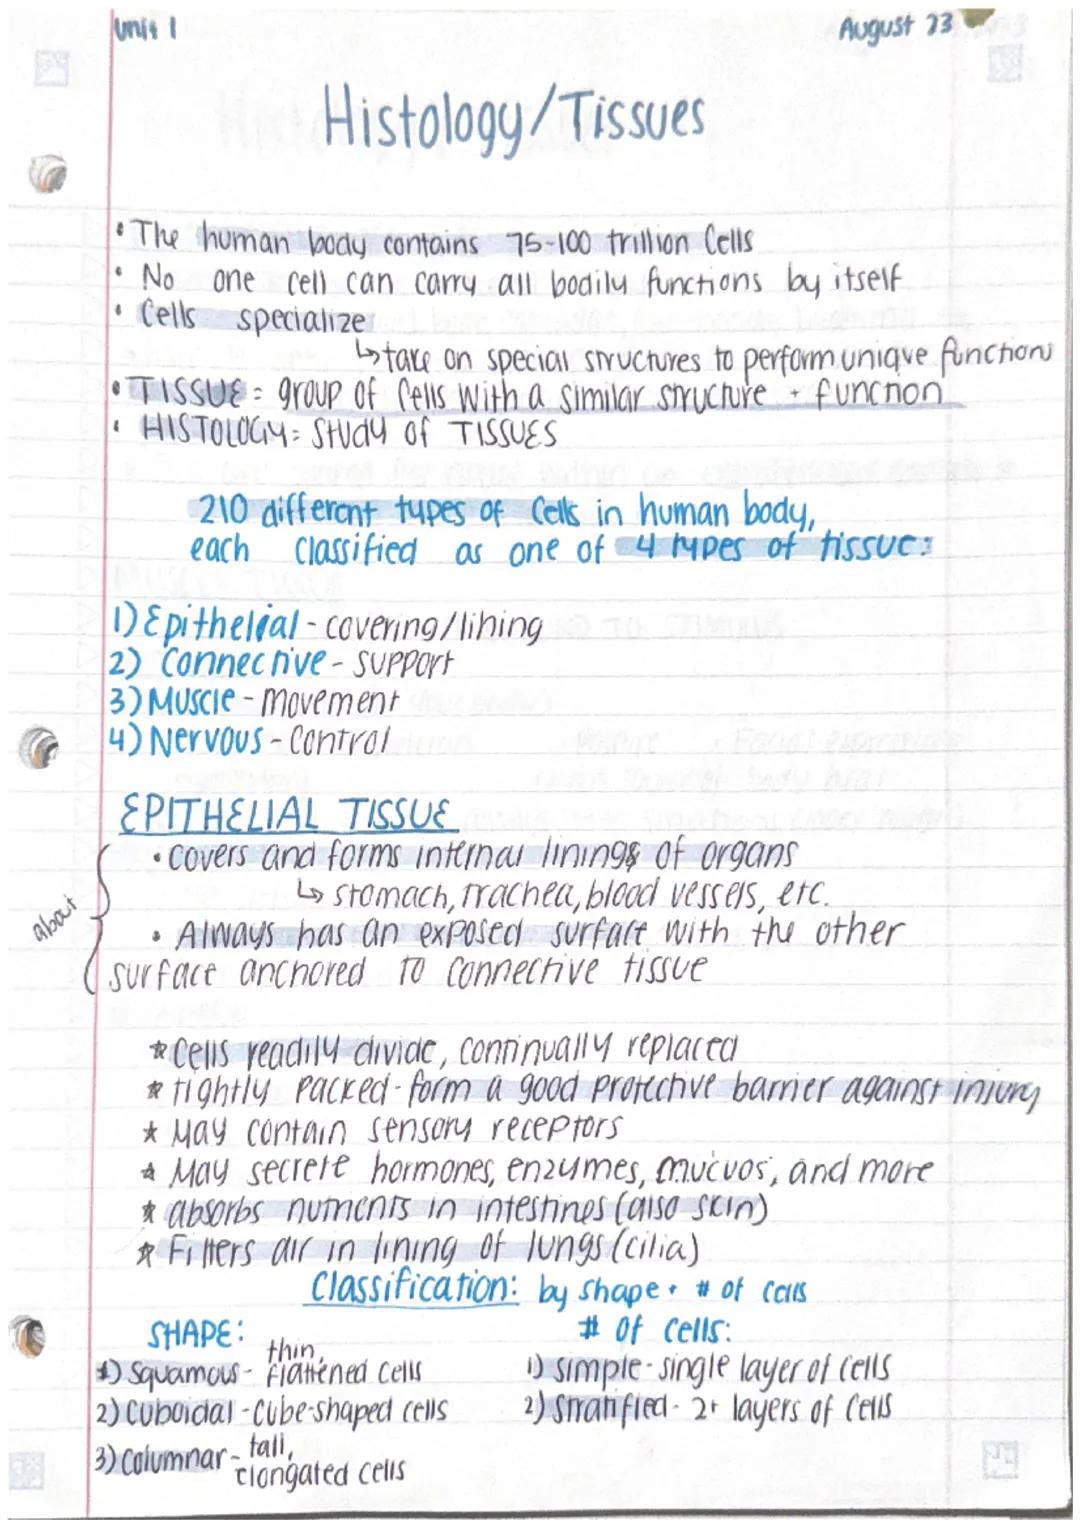 Unit 1
August 23
Histology/Tissues
• The human body contains 75-100 trillion Cells
• No one cell can carry all bodily functions by itself
• Cells specialize
↳ take on special structures to perform unique functions
• TISSUE = group of Cells with a similar structure + function
• HISTOLOGY = Study of TISSUES
210 different types of Cells in human body,
each Classified as one of 4 types of tissue:
1) Epithelial - covering/lining
2) Connective - support
3) Muscle - movement
4) Nervous - Control
EPITHELIAL TISSUE
about
• covers and forms internal linings of organs
↳ stomach, trachea, blood vessels, etc.
• Always has an exposed surface with the other
surface anchored to connective tissue
☆ Cells readily divide, continually replaced
☆ tightly packed - form a good protective barrier against injury
☆ May contain sensory receptors
☆ May secrete hormones, enzymes, mucuos, and more
☆ absorbs nutrients in intestines (also skin)
☆ Filters air in lining of lungs (cilia)
Classification: by shape + # of cells
SHAPE:
# of Cells:
1) Squamous - thin, flattened cells
1) simple - single layer of cells
2) Cuboidal - Cube-shaped cells
2) Stratified - 2+ layers of Cells
3) Columnar - tall, elongated cells